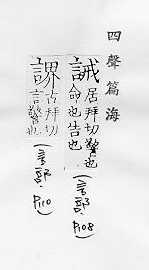 四聲篇海
誡 居拜切警也
命也告也
(言部 P108)
古拜切
言警也
(言部 P110)